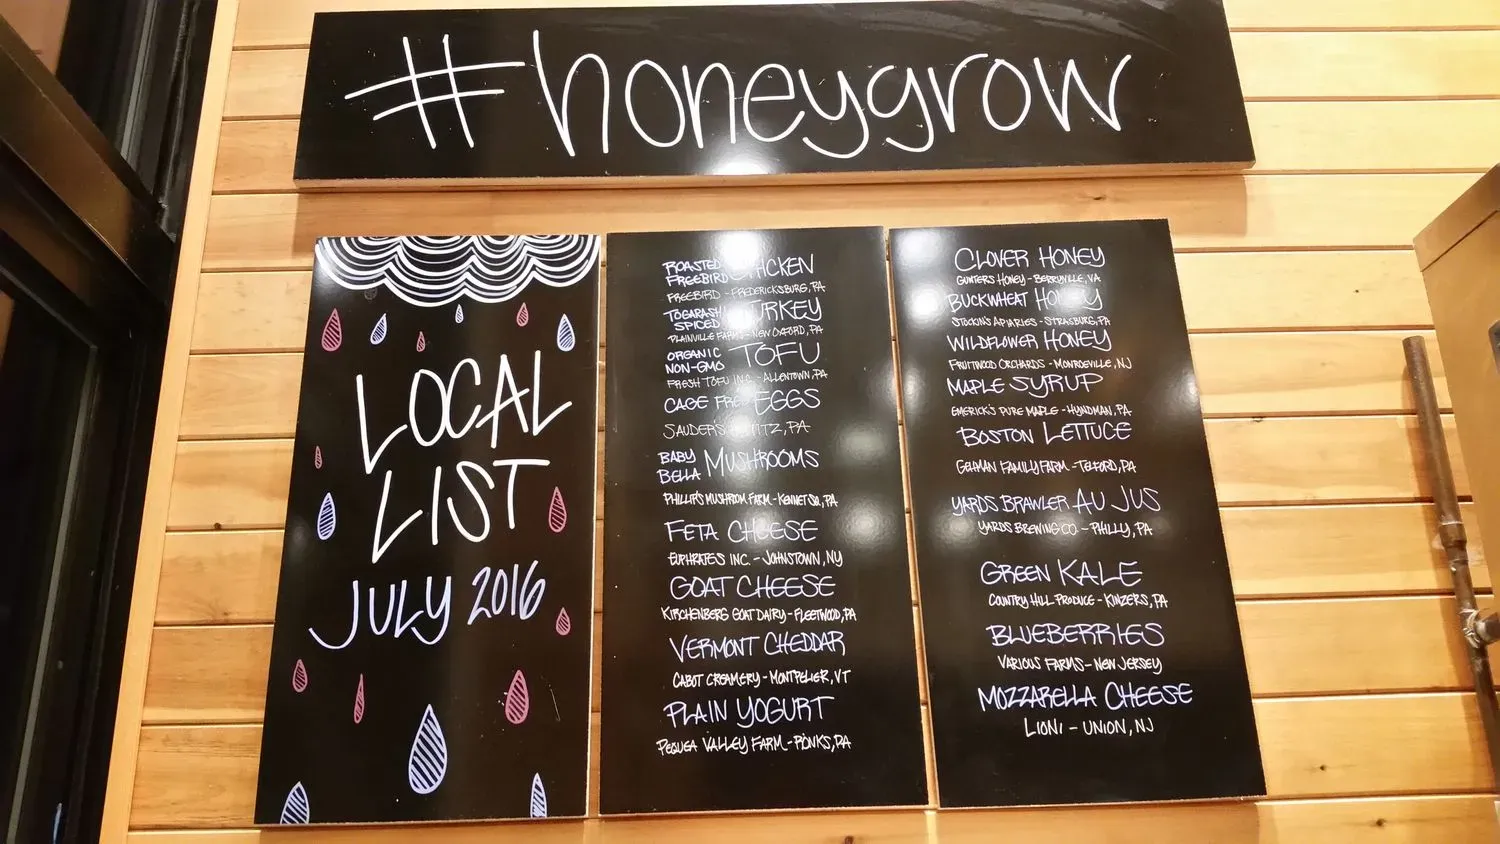 #honeygrow
LOCAL
LIST
JULY 2016
ROASTED
FREEBIRD CHICKEN
FREEBIRD - FREDERICKSBURG, PA
TOGARASHI
SPICED TURKEY
PLAINVILLE FARMS - NEW OXFORD, PA
ORGANIC
NON-GMO TOFU
FRESH TOFU INC. - ALLENTOWN, PA
CAGE FREE EGGS
SAUDER'S - LITITZ, PA
BABY
BELLA MUSHROOMS
PHILLIP'S MUSHROOM FARM - KENNET SQ, PA
FETA CHEESE
EUPHRATES INC. - JOHNSTOWN, NY
GOAT CHEESE
KIRCHENBERG GOAT DAIRY - FLEETWOOD, PA
VERMONT CHEDDAR
CABOT CREAMERY - MONTPELIER, VT
PLAIN YOGURT
PEQUEA VALLEY FARM - RONKS, PA
CLOVER HONEY
GUNTERS HONEY - BERRYVILLE, VA
BUCKWHEAT HONEY
STOCKIN'S APIARIES - STRASBURG, PA
WILDFLOWER HONEY
FRUITWOOD ORCHARDS - MONROEVILLE, NJ
MAPLE SYRUP
EMERICK'S PURE MAPLE - HYNDMAN, PA
BOSTON LETTUCE
GEHMAN FAMILY FARM - TELFORD, PA
YARDS BRAWLER AU JUS
YARDS BREWING CO - PHILLY, PA
GREEN KALE
COUNTRY HILL PRODUCE - KINZERS, PA
BLUEBERRIES
VARIOUS FARMS - NEW JERSEY
MOZZARELLA CHEESE
LIONI - UNION, NJ